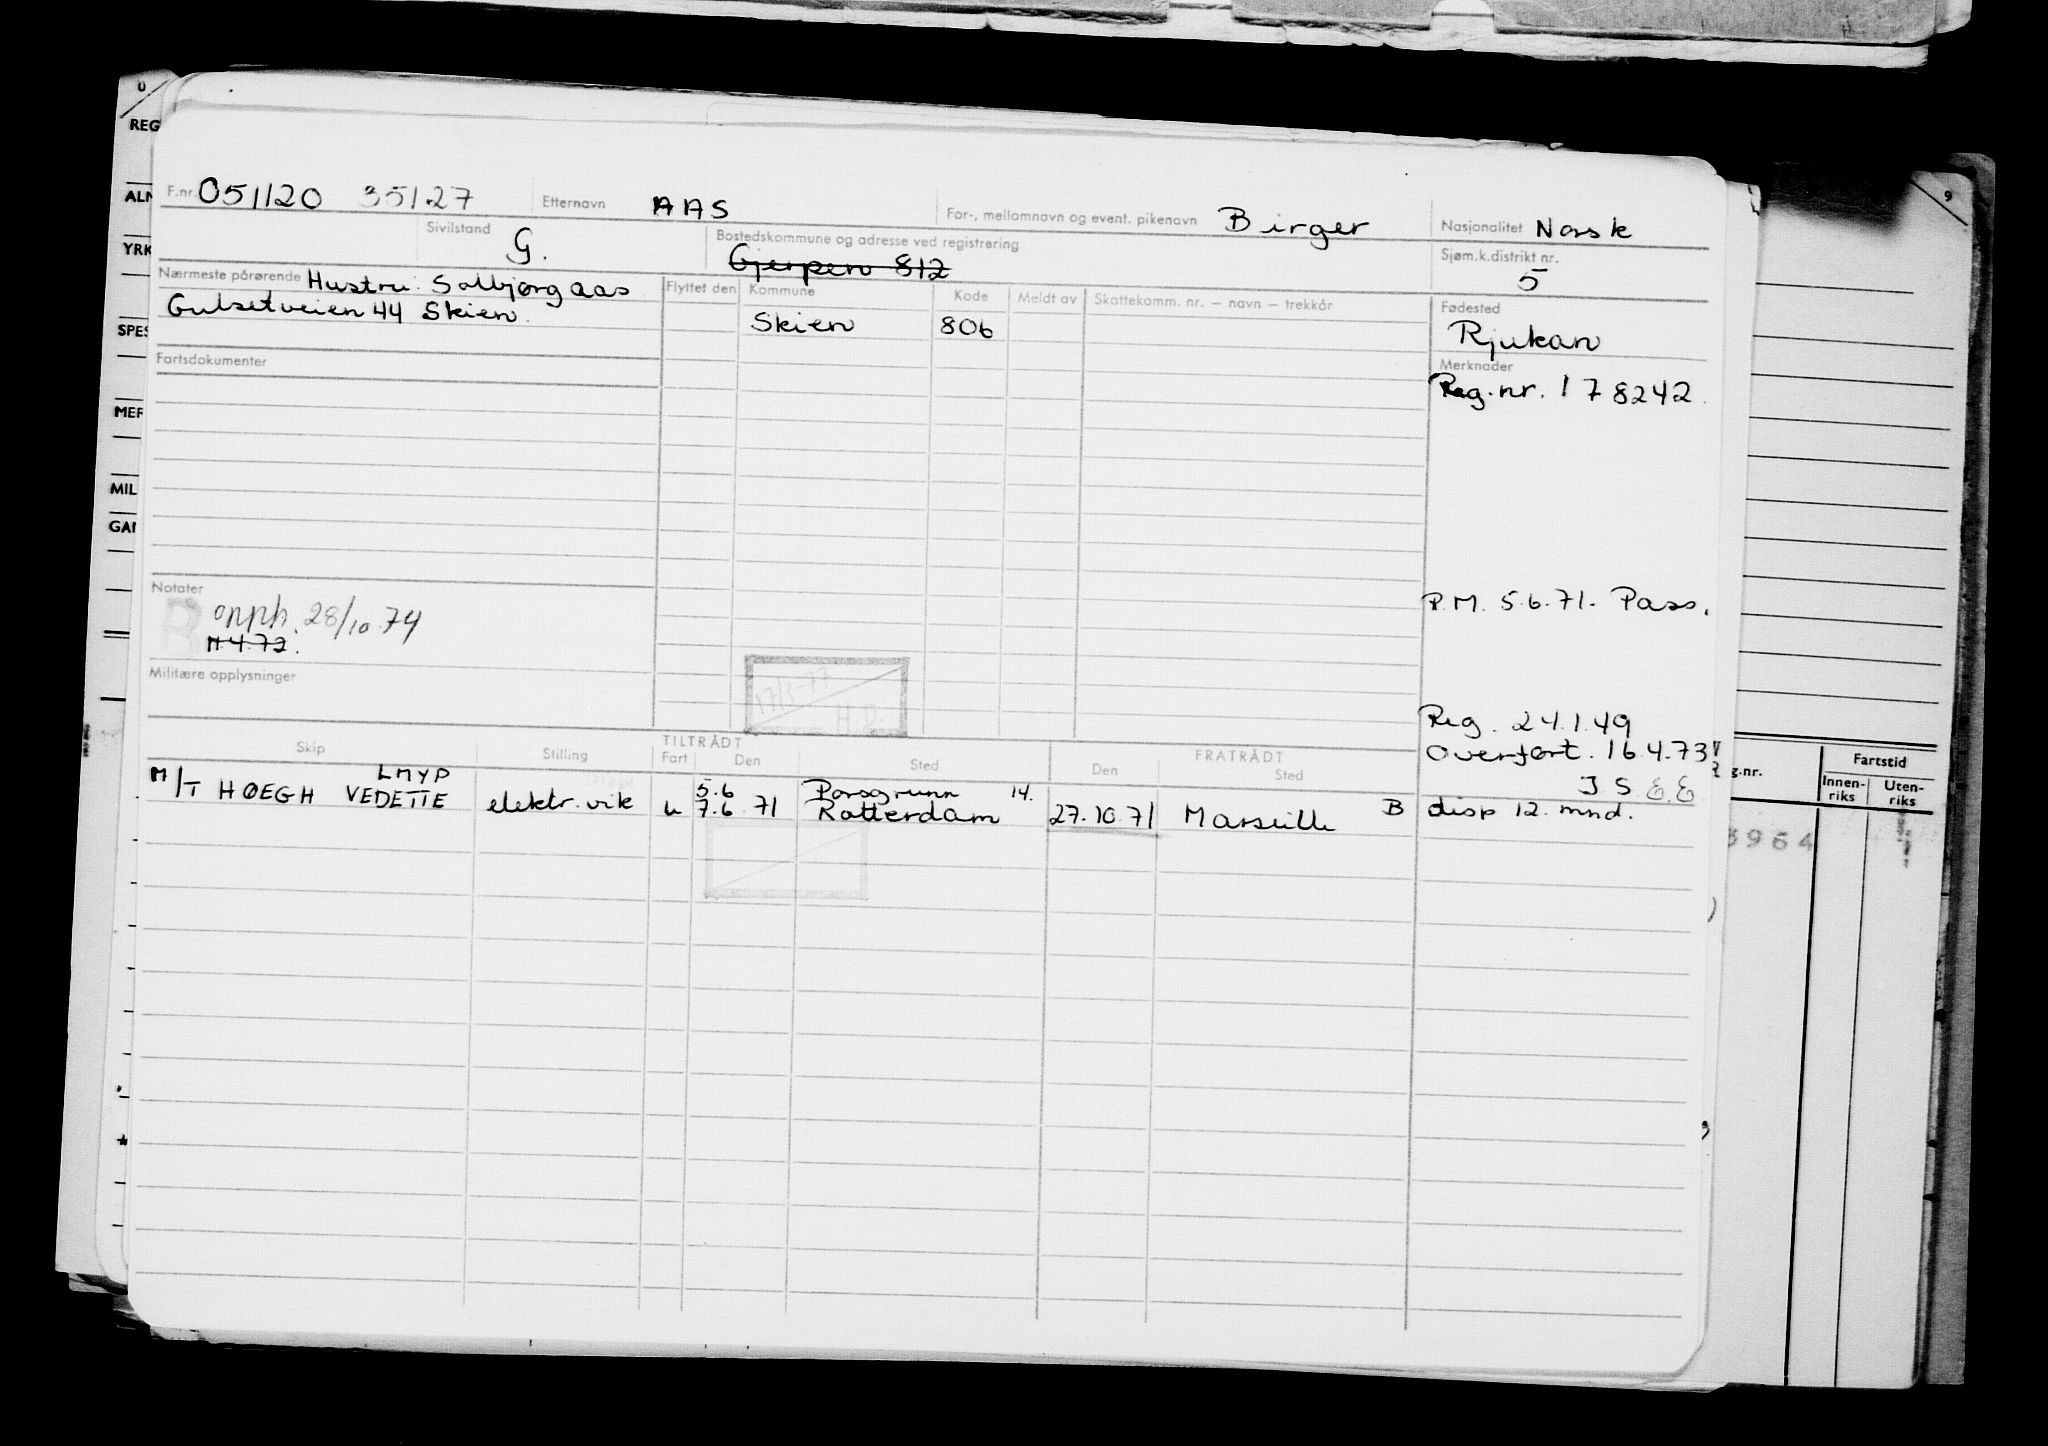 F.nr. 051120 35127 Etternavn AAS For-, mellomnavn og event. pikenavn Birger Nasjonalitet Norsk
Sivilstand G. Bostedskommune og adresse ved registrering Gjerpen 812 Sjøm.k.distrikt nr. 5
Nærmeste pårørende Hustru: Solbjørg Aas
Gulsetveien 44 Skien.
Flyttet den Kommune Kode Meldt av Skattekomm. nr. – navn – trekkår
Skien 806
Fødested
Rjukan
Fartsdokumenter
Merknader
Reg.nr. 178242
P.M. 5.6.71. Pass.
Notater
B opph. 28/10.74
M.4.72.
Militære opplysninger
17/3-77
H.D.
Reg. 24.1.49
Overført. 16.4.73
J S
Skip Stilling TILTRÅDT Fart Den Sted FRATRÅDT Den Sted
LMYP 5.6 Porsgrunn 14.
M/T HØEGH VEDETTE elektr. vik u 7.6.71 Rotterdam 27.10.71 Marseille B disp 12. mnd.
0
REG
ALN
YRK
SPES
MER
MIL
GAN
9
g.nr.
Fartstid
Innen-
riks
Uten-
riks
3964